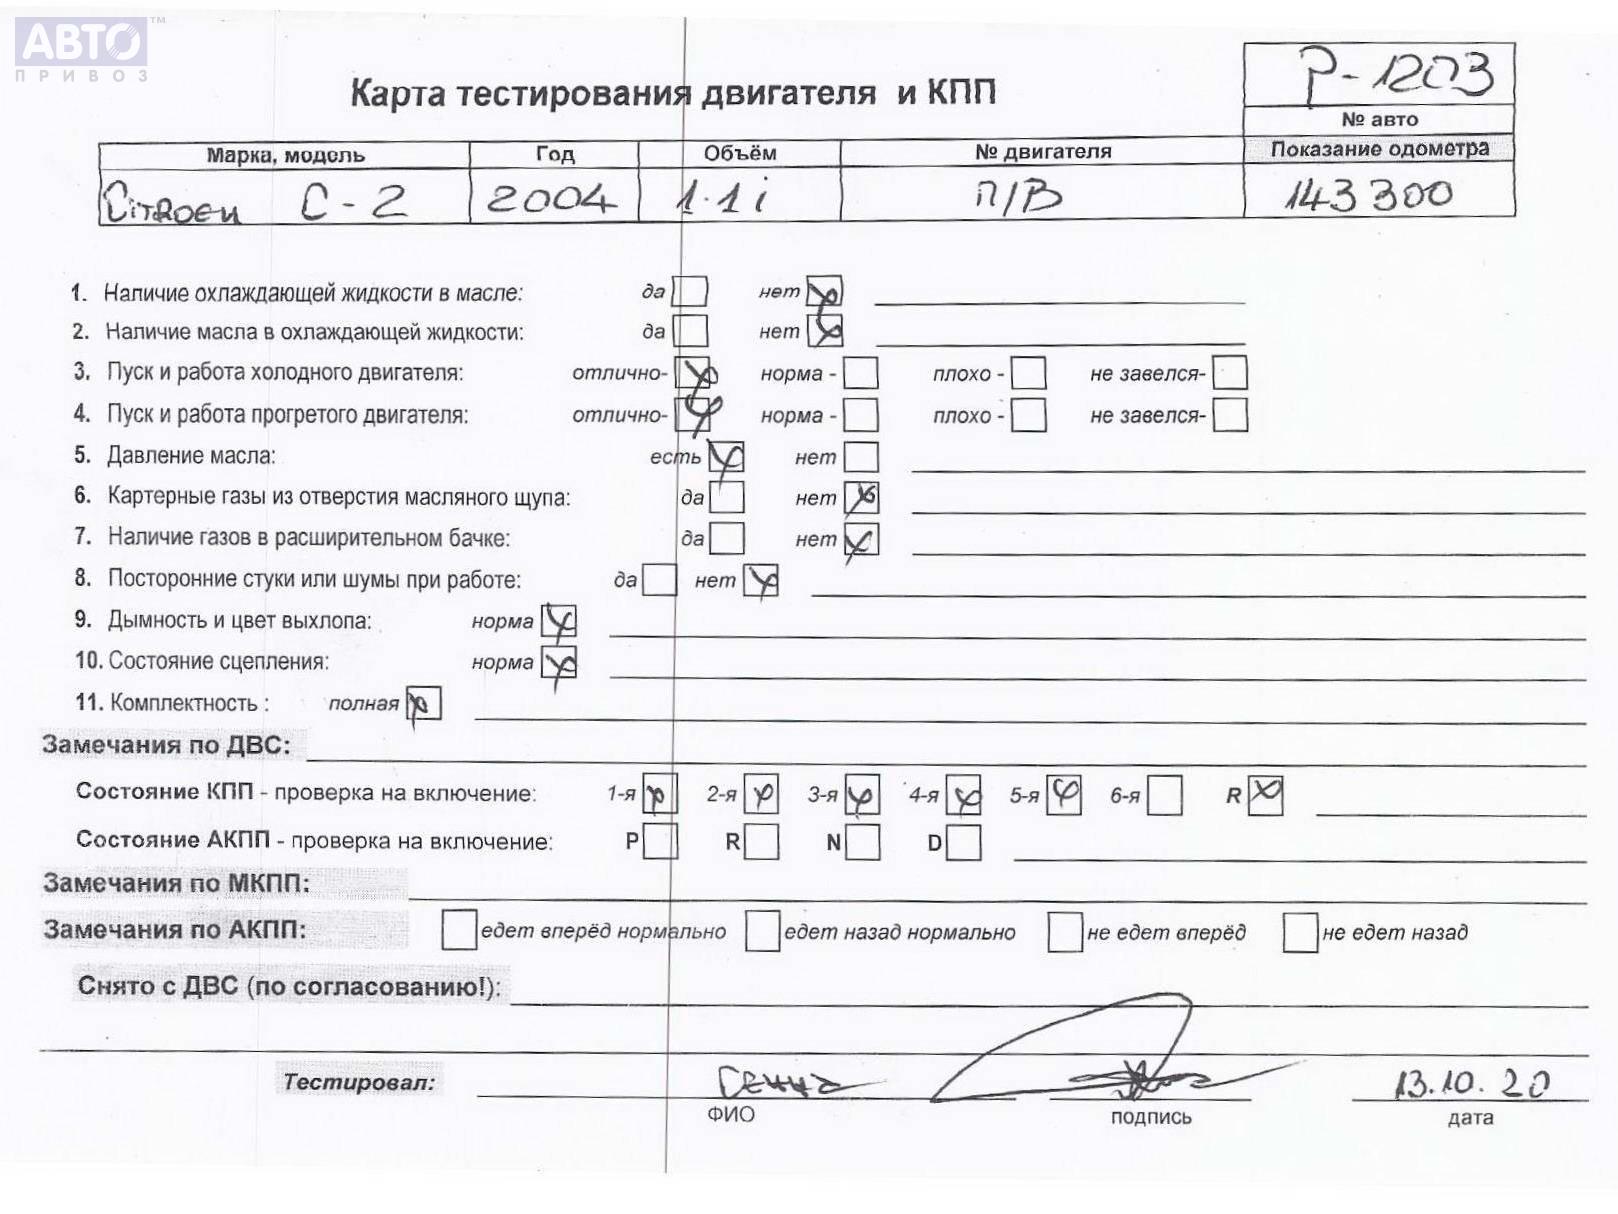 АВТО™
ПРИВОЗ
Карта тестирования двигателя и КПП
P-1203
№ авто
Марка, модель Год Объём № двигателя Показание одометра
CiTROEN C-2 2004 1.1i П/В 143300
1. Наличие охлаждающей жидкости в масле: да нет
2. Наличие масла в охлаждающей жидкости: да нет
3. Пуск и работа холодного двигателя: отлично- норма - плохо - не завелся-
4. Пуск и работа прогретого двигателя: отлично- норма - плохо - не завелся-
5. Давление масла: есть нет
6. Картерные газы из отверстия масляного щупа: да нет
7. Наличие газов в расширительном бачке: да нет
8. Посторонние стуки или шумы при работе: да нет
9. Дымность и цвет выхлопа: норма
10. Состояние сцепления: норма
11. Комплектность : полная
Замечания по ДВС:
Состояние КПП - проверка на включение: 1-я 2-я 3-я 4-я 5-я 6-я R
Состояние АКПП - проверка на включение: P R N D
Замечания по МКПП:
Замечания по АКПП: едет вперёд нормально едет назад нормально не едет вперёд не едет назад
Снято с ДВС (по согласованию!):
Тестировал: 13.10.20
ФИО подпись дата